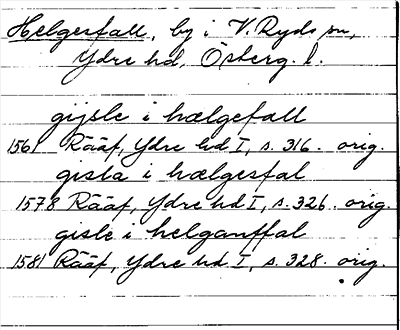 Helgerfall, by i V. Ryds sn,
Ydre hd, Österg. l.
gijsle i hælgefall
1561 Rääf, Ydre hd I, s. 316. orig.
gisla i hælgesfal
1578 Rääf, Ydre hd I, s. 326. orig.
gisle i helganffal
1581 Rääf, Ydre hd I, s. 328. orig.